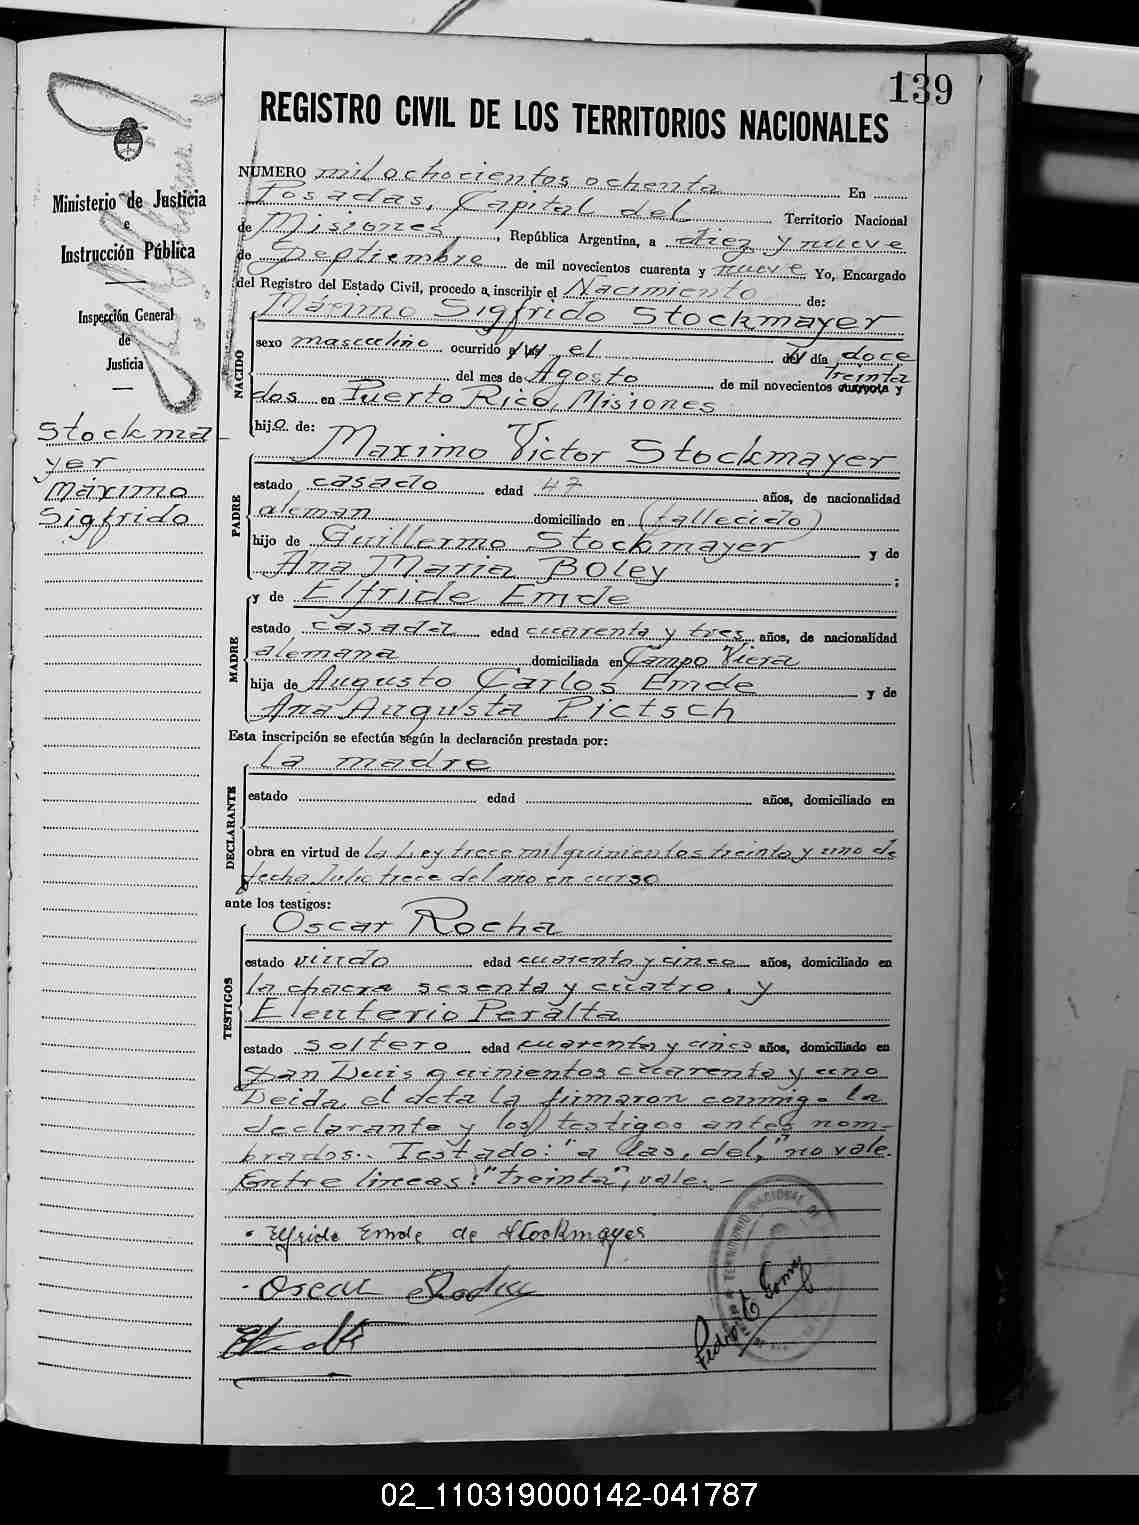 139
REGISTRO CIVIL DE LOS TERRITORIOS NACIONALES
Ministerio de Justicia
e
Instrucción Pública
Inspección General
de
Justicia
Stockma
yer
Máximo
Sigfrido
NUMERO mil ochocientos ochenta En
Posadas, Capital del Territorio Nacional
de Misiones, República Argentina, a diez y nueve
de Septiembre de mil novecientos cuarenta y nueve Yo, Encargado
del Registro del Estado Civil, procedo a inscribir el Nacimiento de:
Máximo Sigfrido Stockmayer
NACIDO
sexo masculino ocurrido a las el del día doce
treinta
del mes de Agosto de mil novecientos cuarenta y
dos en Puerto Rico, Misiones
hijo de:
Maximo Victor Stockmayer
PADRE
estado casado edad 47 años, de nacionalidad
aleman domiciliado en (fallecido)
hijo de Guillermo Stockmayer y de
Ana Maria Boley ;
y de Elfride Emde
MADRE
estado casada edad cuarenta y tres años, de nacionalidad
alemana domiciliada en Campo Viera
hija de Augusto Carlos Emde y de
Ana Augusta Pictsch
Esta inscripción se efectúa según la declaración prestada por:
La madre
DECLARANTE
estado edad años, domiciliado en
obra en virtud de la Ley trece mil quinientos treinta y uno de
fecha Julio trece del año en curso
ante los testigos:
Oscar Rocha
TESTIGOS
estado viudo edad cuarenta y cinco años, domiciliado en
la chacra sesenta y cuatro. y
Eleuterio Peralta
estado soltero edad cuarenta y cinco años, domiciliado en
San Luis quinientos cuarenta y uno
Leida el acta la firmaron conmigo la
declarante y los testigos antes nom-
brados.. Testado: "a las, del," no vale.
Entre lineas: "treinta", vale.-
Elfride Emde de Stockmayer
Oscar Rocha
02_110319000142-041787